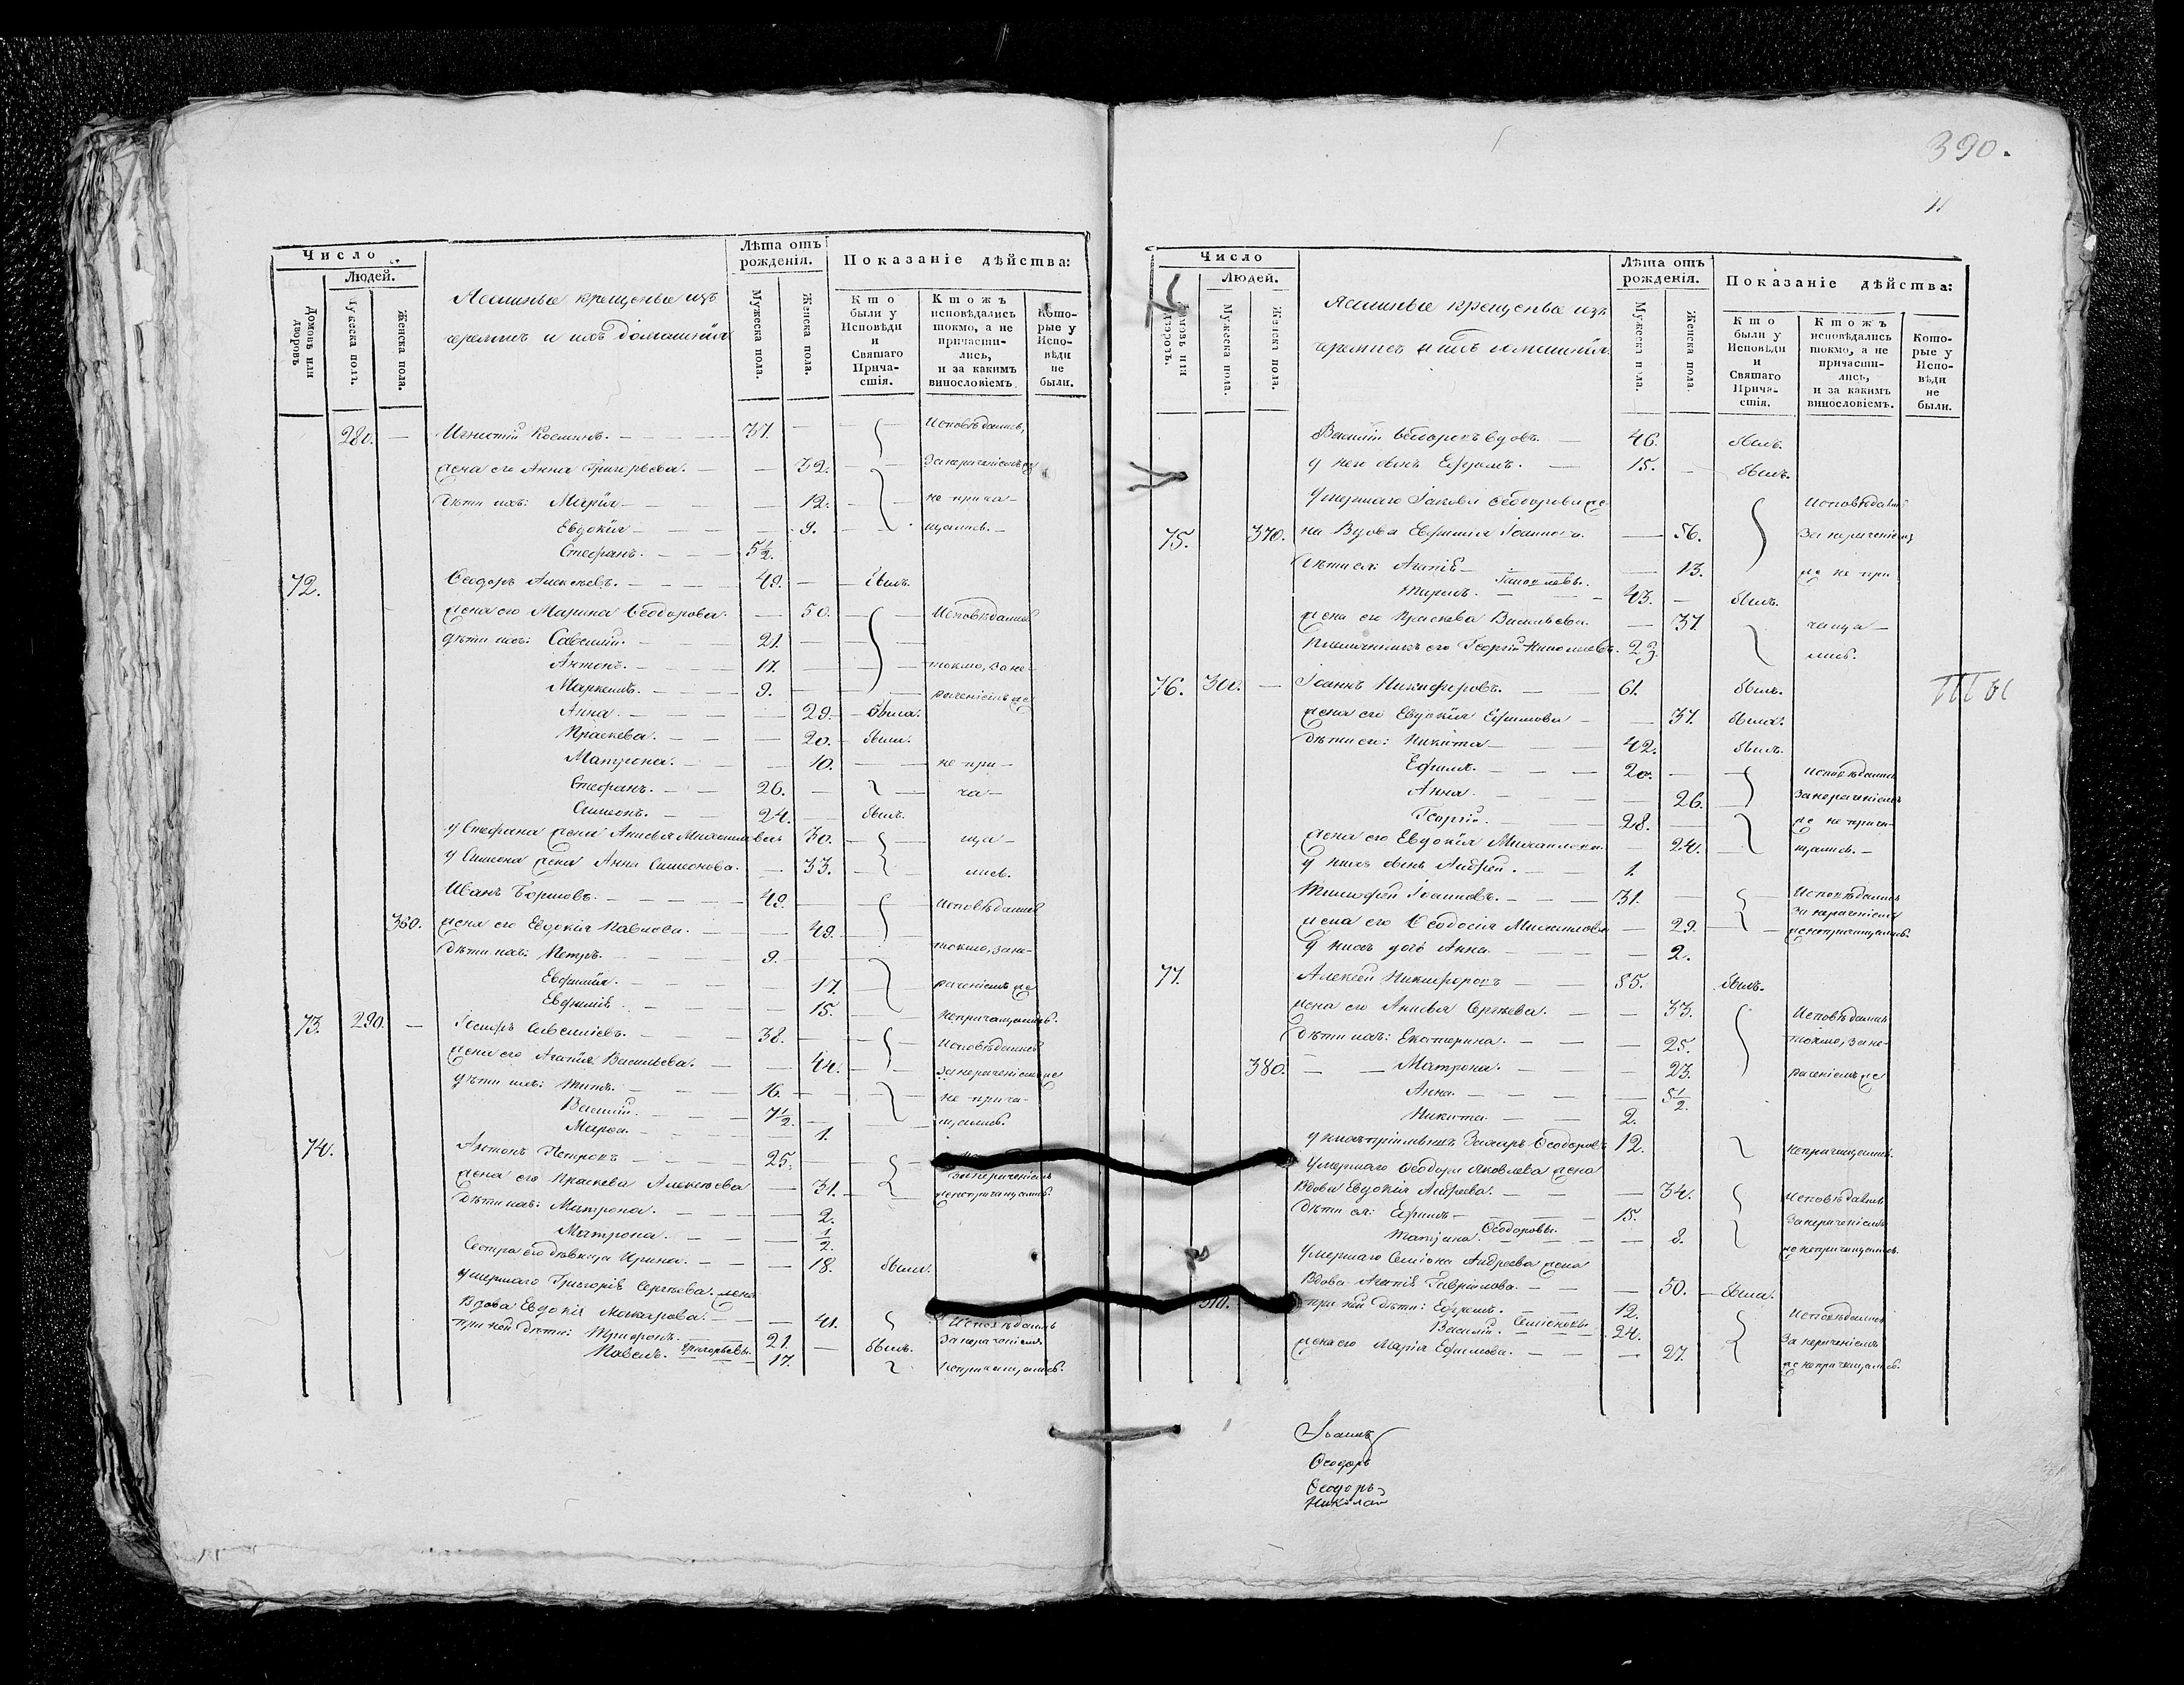 Число
Людей.
Домовъ или дворовъ
Мужеска полъ.
Женска пола.
Ясашные крещеные изъ
черемисъ и ихъ домашнія
Лѣта отъ рожденія.
Мужеска пола.
Женска пола.
Показаніе дѣйства:
Кто были у Исповѣди и Святаго Причастія.
Ктожъ исповѣдались токмо, а не причастились, и за какимъ винословіемъ.
Которые у Исповѣди не были.
280. — Игнатій Косминъ. — 37. — Исповѣдались,
жена его Анна Григорьева. — 32. — за нераченіемъ же
дѣти ихъ: Марія — 12. — не прича-
Евдокія — 9. — щались. —
Стефанъ. — 5 1/2.
72. Ѳеодоръ Алексѣевъ. — 49. — былъ.
жена его Марина Ѳеодорова. — 50. — Исповѣдались
дѣти ихъ: Савелій. — 21.
Антонъ. — 17. — токмо, за не-
Маркелъ. — 9. — раченіемъ же
Анна. — 29. — была.
Праскева. — 20. — была.
Матрона. — 10. — не при-
Стефанъ. — 26. — ча-
Симеонъ. — 24. — былъ.
у Стефана жена Анисья Михаилова 30. — ща-
у Симеона жена Анна Симеонова. — 33. — лись.
Иванъ Борисовъ. — 49. — Исповѣдались
360. жена его Евдокія Павлова. — 49.
дѣти ихъ: Петръ. — 9. — токмо, за не-
Евфимія. — 17. — раченіемъ же
Евфимія. — 15. — не причащались.
73. 290. — Іосифъ Савеліевъ. — 38. — Исповѣдались
жена его Агапія Васильева. — 44. — за нераченіемъ же
дѣти ихъ: Титъ. — 16. — не прича-
Василій. — 7 1/2. — щались.
Марѳа. — 1.
74. Антонъ Петровъ — 25.
жена его Праскева Алексѣева — 31. — за нераченіемъ же не причащались.
дѣти ихъ: Матрона. — 2.
Матрона. — 1/2.
Сестра его дѣвица Ирина. — 18. была.
умершаго Григорія Сергѣева жена
Вдова Евдокія Макарова. — 41. Исповѣдались
при ней дѣти: Трифонъ. — 21. — былъ. за нераченіемъ
Павелъ. Григорьевы. — 17. не причащались.
390.
11
Число
Людей.
Домовъ или дворовъ.
Мужеска пола.
Женска пола.
Ясашные крещеные изъ
черемисъ и ихъ домашнія
Лѣта отъ рожденія.
Мужеска пола.
Женска пола.
Показаніе дѣйства:
Кто были у Исповѣди и Святаго Причастія.
Ктожъ исповѣдались токмо, а не причастились, и за какимъ винословіемъ.
Которые у Исповѣди не были.
Василій Ѳеодоровъ вдовъ. — 46. былъ.
у него сынъ Ефремъ. — 15. — былъ.
Умершаго Іакова Ѳеодорова же- Исповѣдались
75. 370. на Вдова Евфимія Іоаннова. — 56. за нераченіемъ
дѣти ея: Агапія — 13. же не при
43. — былъ.
жена его Праскева Васильева. — 37. ча ща-
Племянникъ его Георгій 23. лись.
76. — Іоаннъ Никифоровъ. — 61. былъ.
жена его Евдокія Ефимова — 37. была.
дѣти его: Никита — 42. былъ.
Ефимъ. — 20. — Исповѣдались
Анна. — 26. за нераченіемъ
Георгій. — 28. — же не прича-
жена его Евдокія Михаилова. — 24. щались. —
у нихъ сынъ Андрей. — 1.
Тимофей Іоанновъ. — 31. — Исповѣдались
за нераченіемъ
жена его Ѳеодосія Михаилова — 29. же не причащались.
у нихъ дочь Анна — 2.
77. Алексѣй Никифоровъ — 55. былъ.
жена его Анисья Сергѣева. — 33. Исповѣдались
дѣти ихъ: Екатерина. — 25. токмо, за не-
380. — Матрона. — 23. раченіемъ же
Анна. — 5 1/2.
Никита. — 2.
у нихъ пріемышъ Захаръ Ѳеодоровъ 12. не причащались.
Умершаго Ѳеодора Яковлева жена
Вдова Евдокія Андреева. — 34. Исповѣдались
дѣти ея: Ефимъ — 15. за нераченіемъ
Татьяна. Ѳеодоровы. — 8. же не причащались.
Умершаго Семіона Андреева жена
Вдова Агапія Гавріилова. — 50. — была.
при ней дѣти: Ефремъ. — 12. Исповѣдались
Василій. Семіоновы. 24. за нераченіемъ
жена его Марія Ефимова. — 27. же не причащались.
Іоаннъ
Ѳеодоръ
Ѳеодоръ
Николай